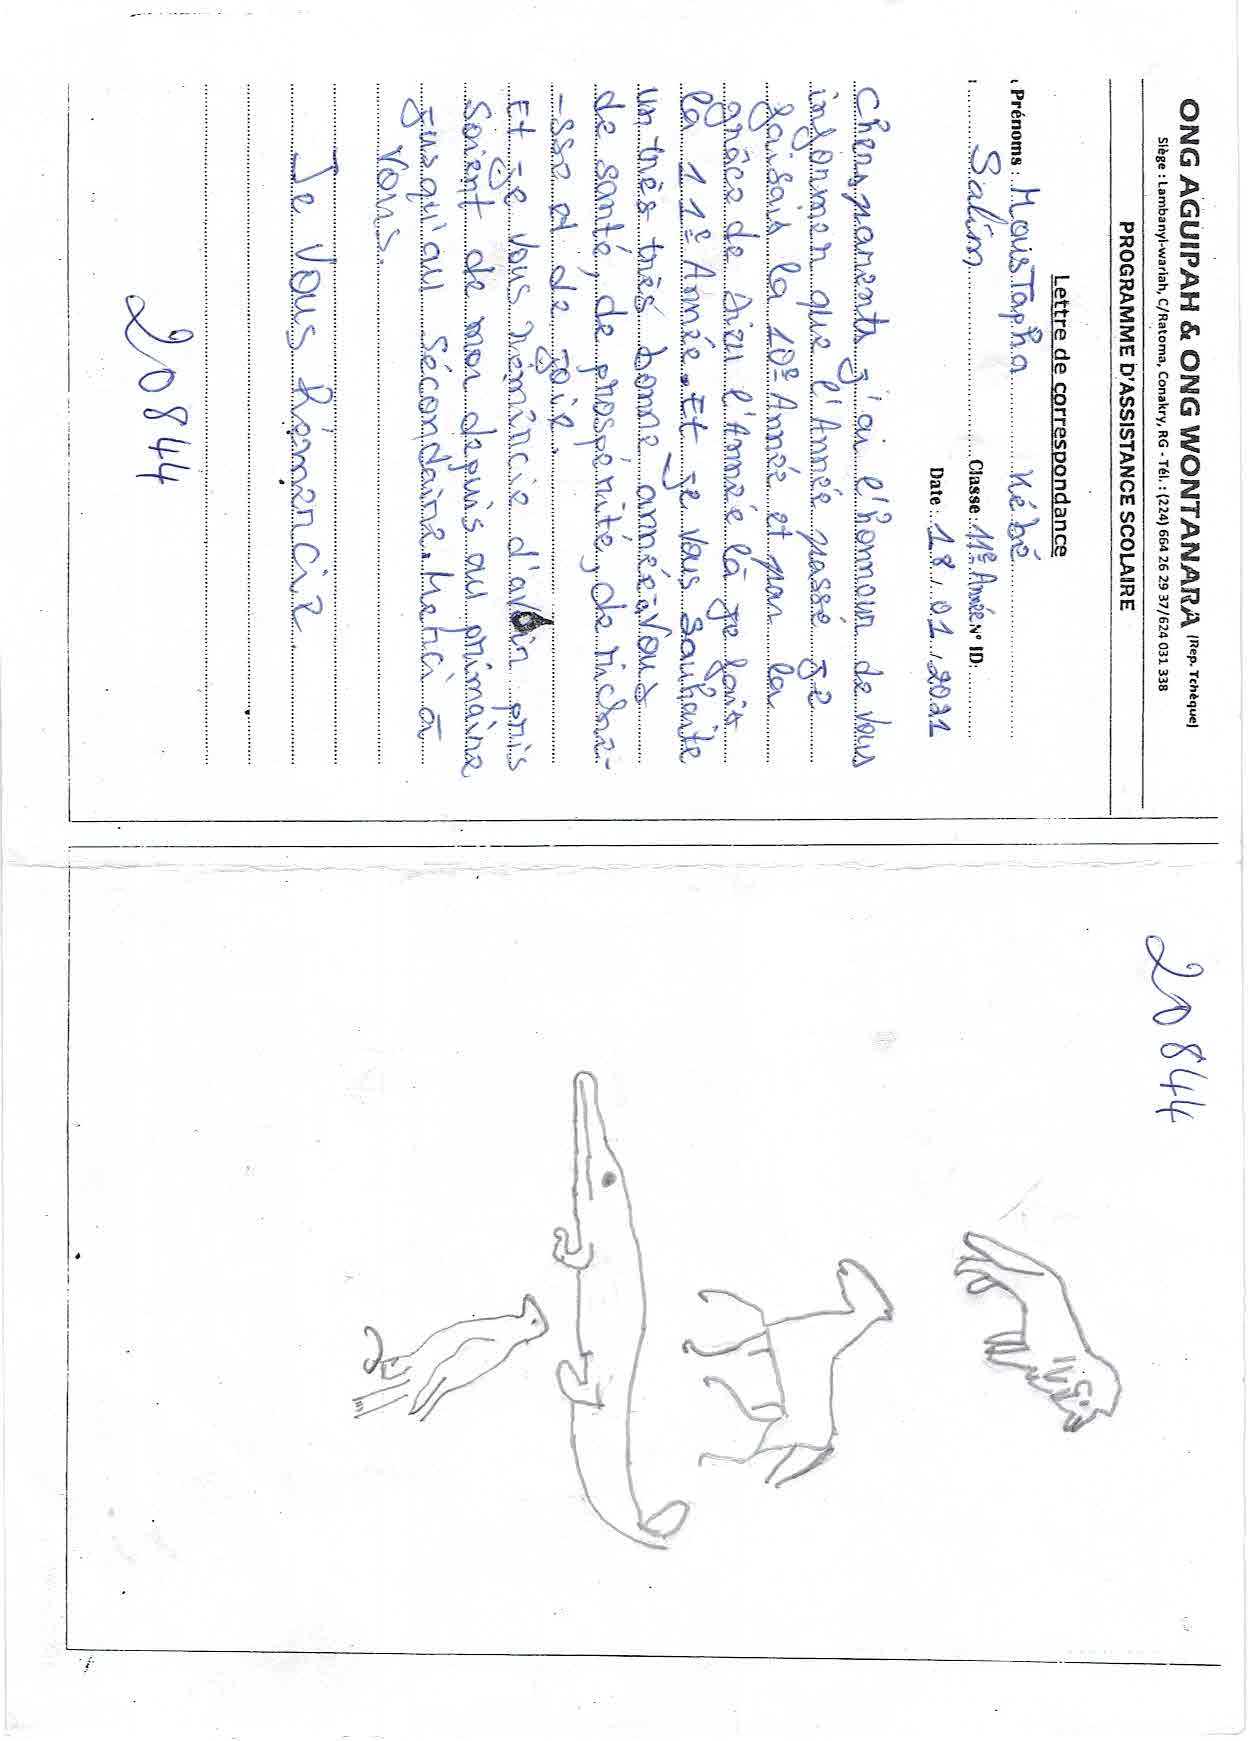 ONG AGUIPAH & ONG WONTANARA (Rep. Tchèque)
Siège : Lambanyi-wariah, C/Ratoma, Conakry, RG - Tél. : (224) 664 26 29 37/624 031 338
PROGRAMME D'ASSISTANCE SCOLAIRE
Lettre de correspondance
Prénoms : MousTapha Kébé
Salim Classe : 11e Année N° ID:
Date : 18 / 01 / 2021
Chers parents j'ai l'honnour de vous
informer que l'Année passé je
faisais la 10e Année et par la
grâce de Dieu l'Année là je fais
la 11e Année. Et je vous sauhaite
un très très bonne année. Vous
de santé, de prospérité, de riche-
-sse et de joie.
Et je vous rémércie d'avoir pris
Soient de moi depuis au primaire
jusqu'au sécondaire. Merci à
vous.
Je vous rémercie.
20844
20844